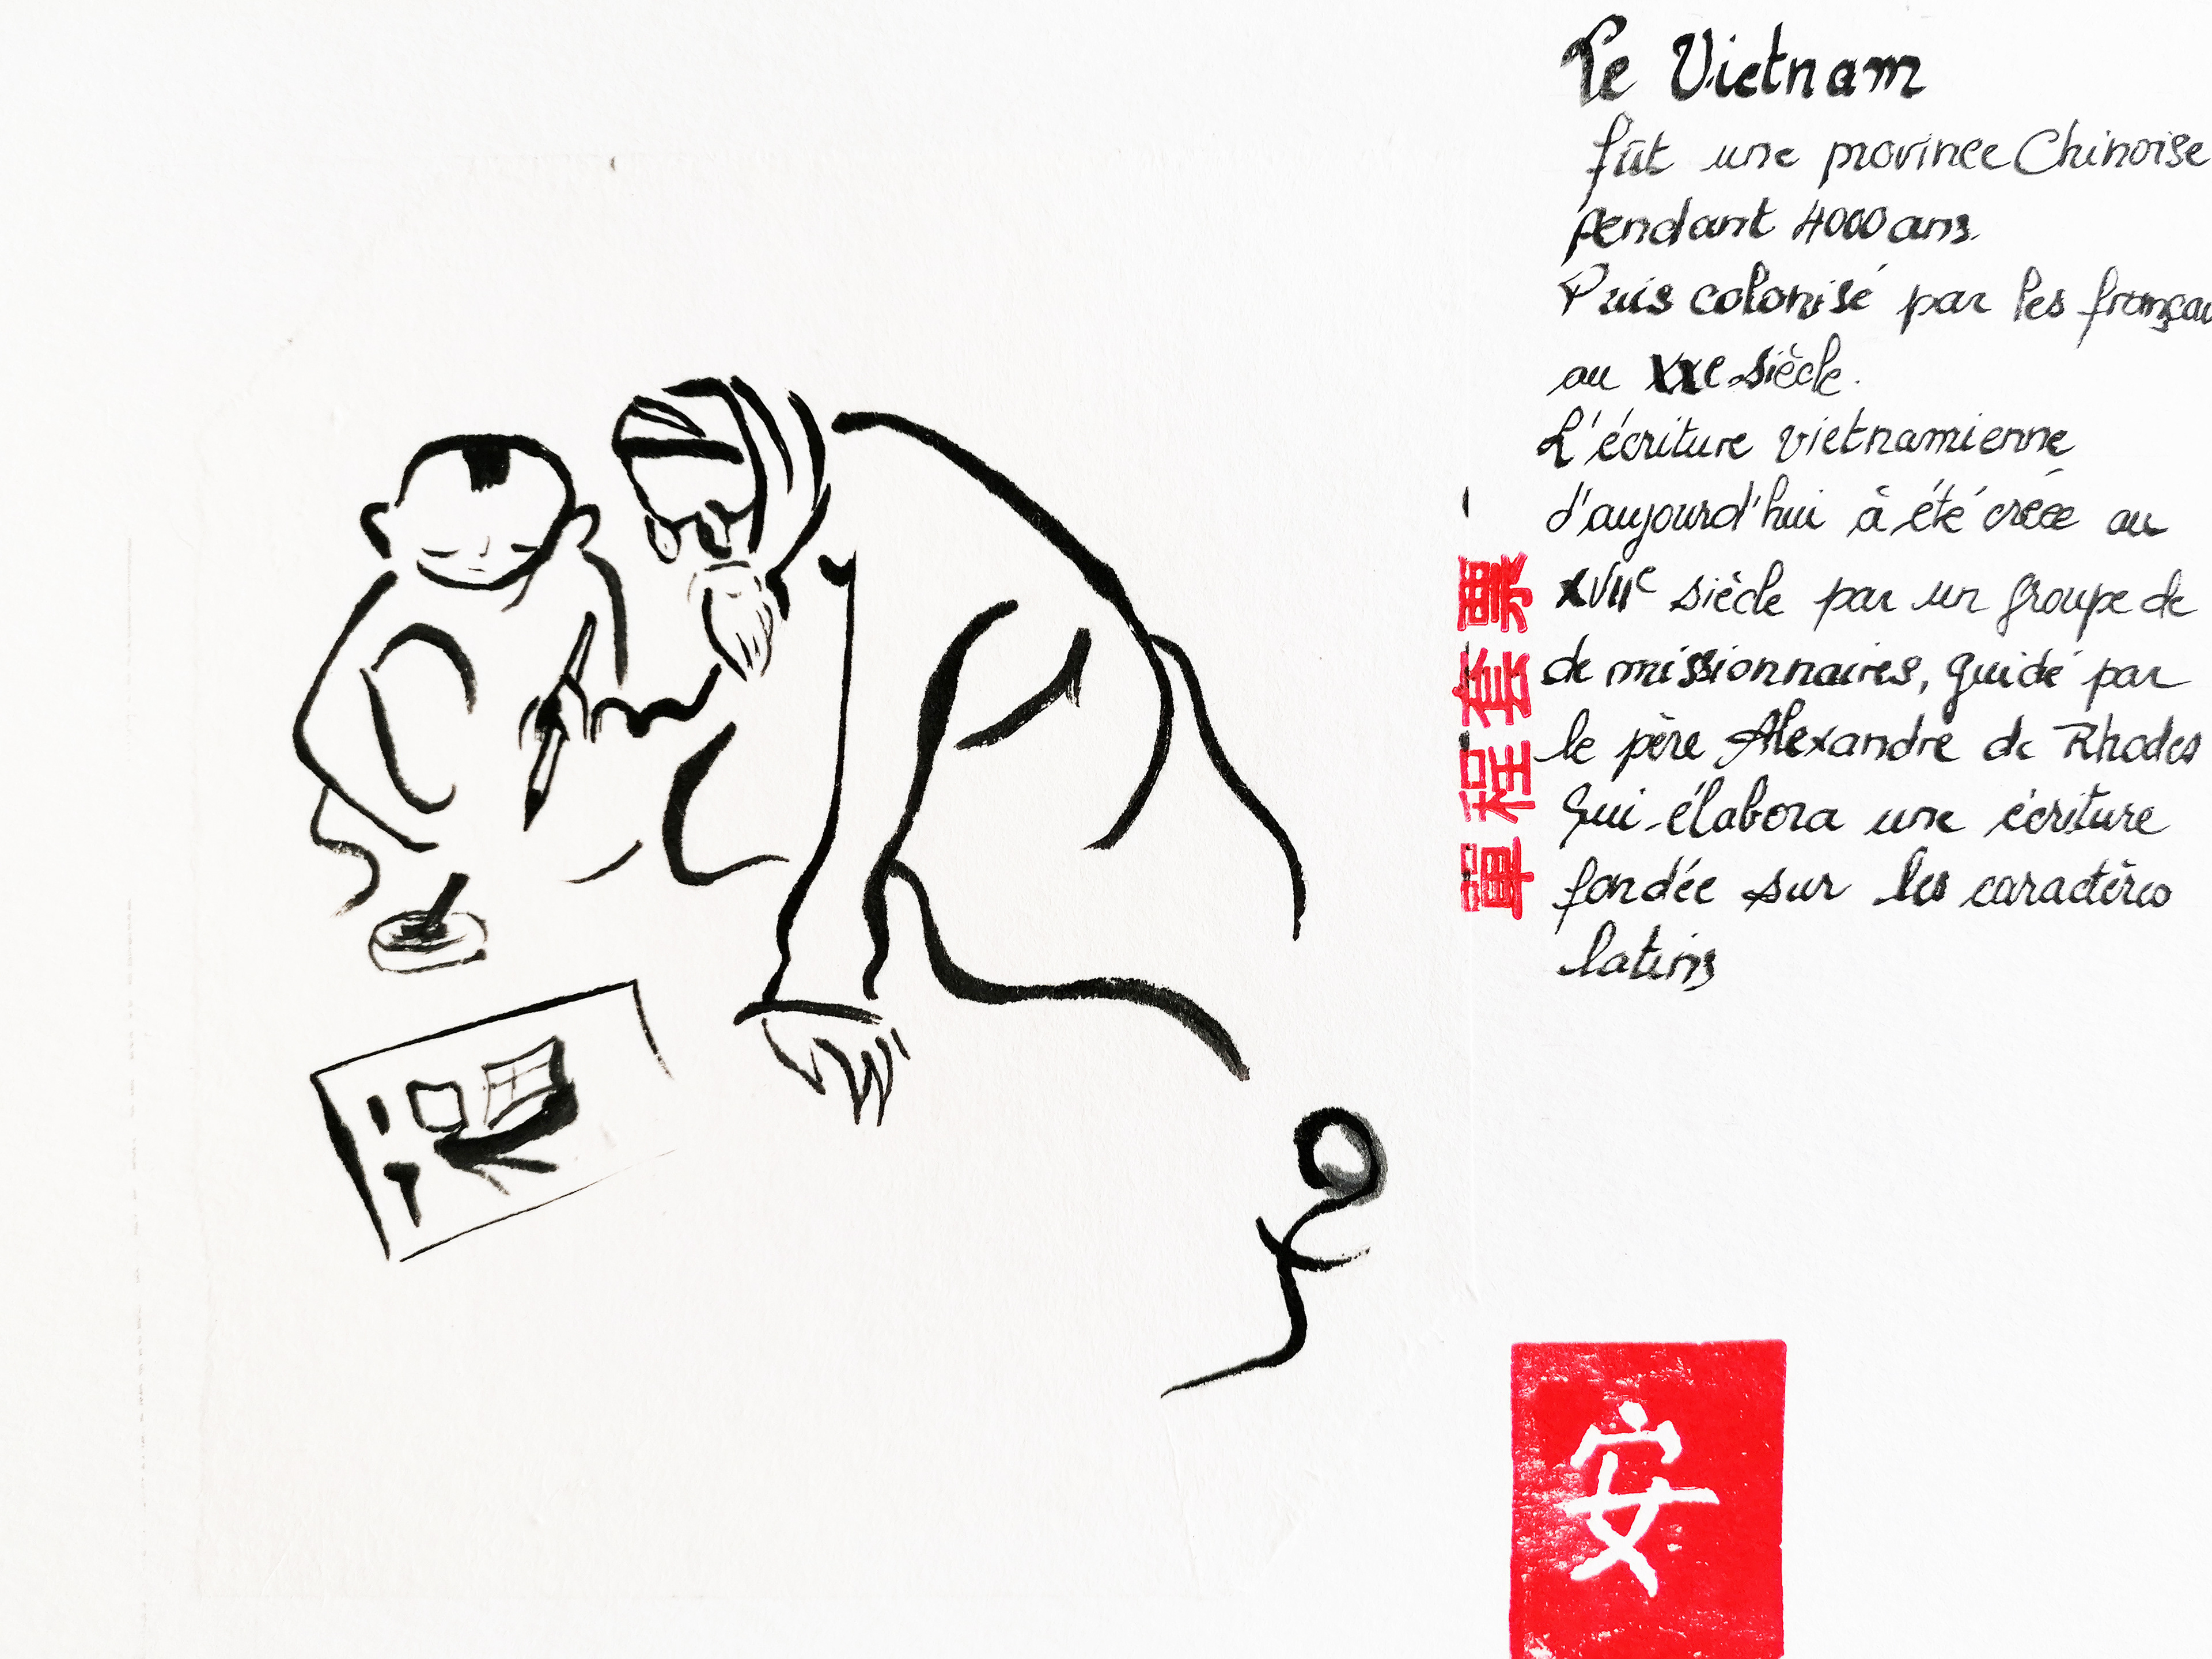 Le Vietnam
fût une province Chinoise
pendant 4000 ans.
Puis colonisé par les françai
au XXe siècle.
L'écriture vietnamienne
d'aujourd'hui à été créée au
XVIIe siècle par un groupe de
de missionnaires, guidé par
le père Alexandre de Rhodes
qui élabora une écriture
fondée sur les caractères
latins
單程套票
安